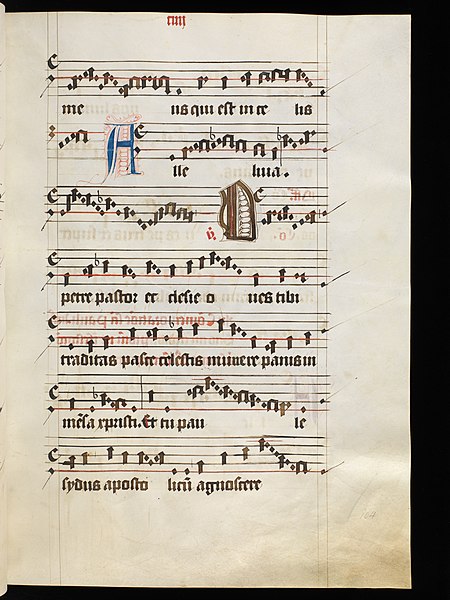 me us qui est in ce lis
A lle luia.
petre pastor ec clesie o ues tibi
traditas pasce celestis munere panis in
mēsa xpristi. Et tu pau le
sydus aposto licū agnoscere